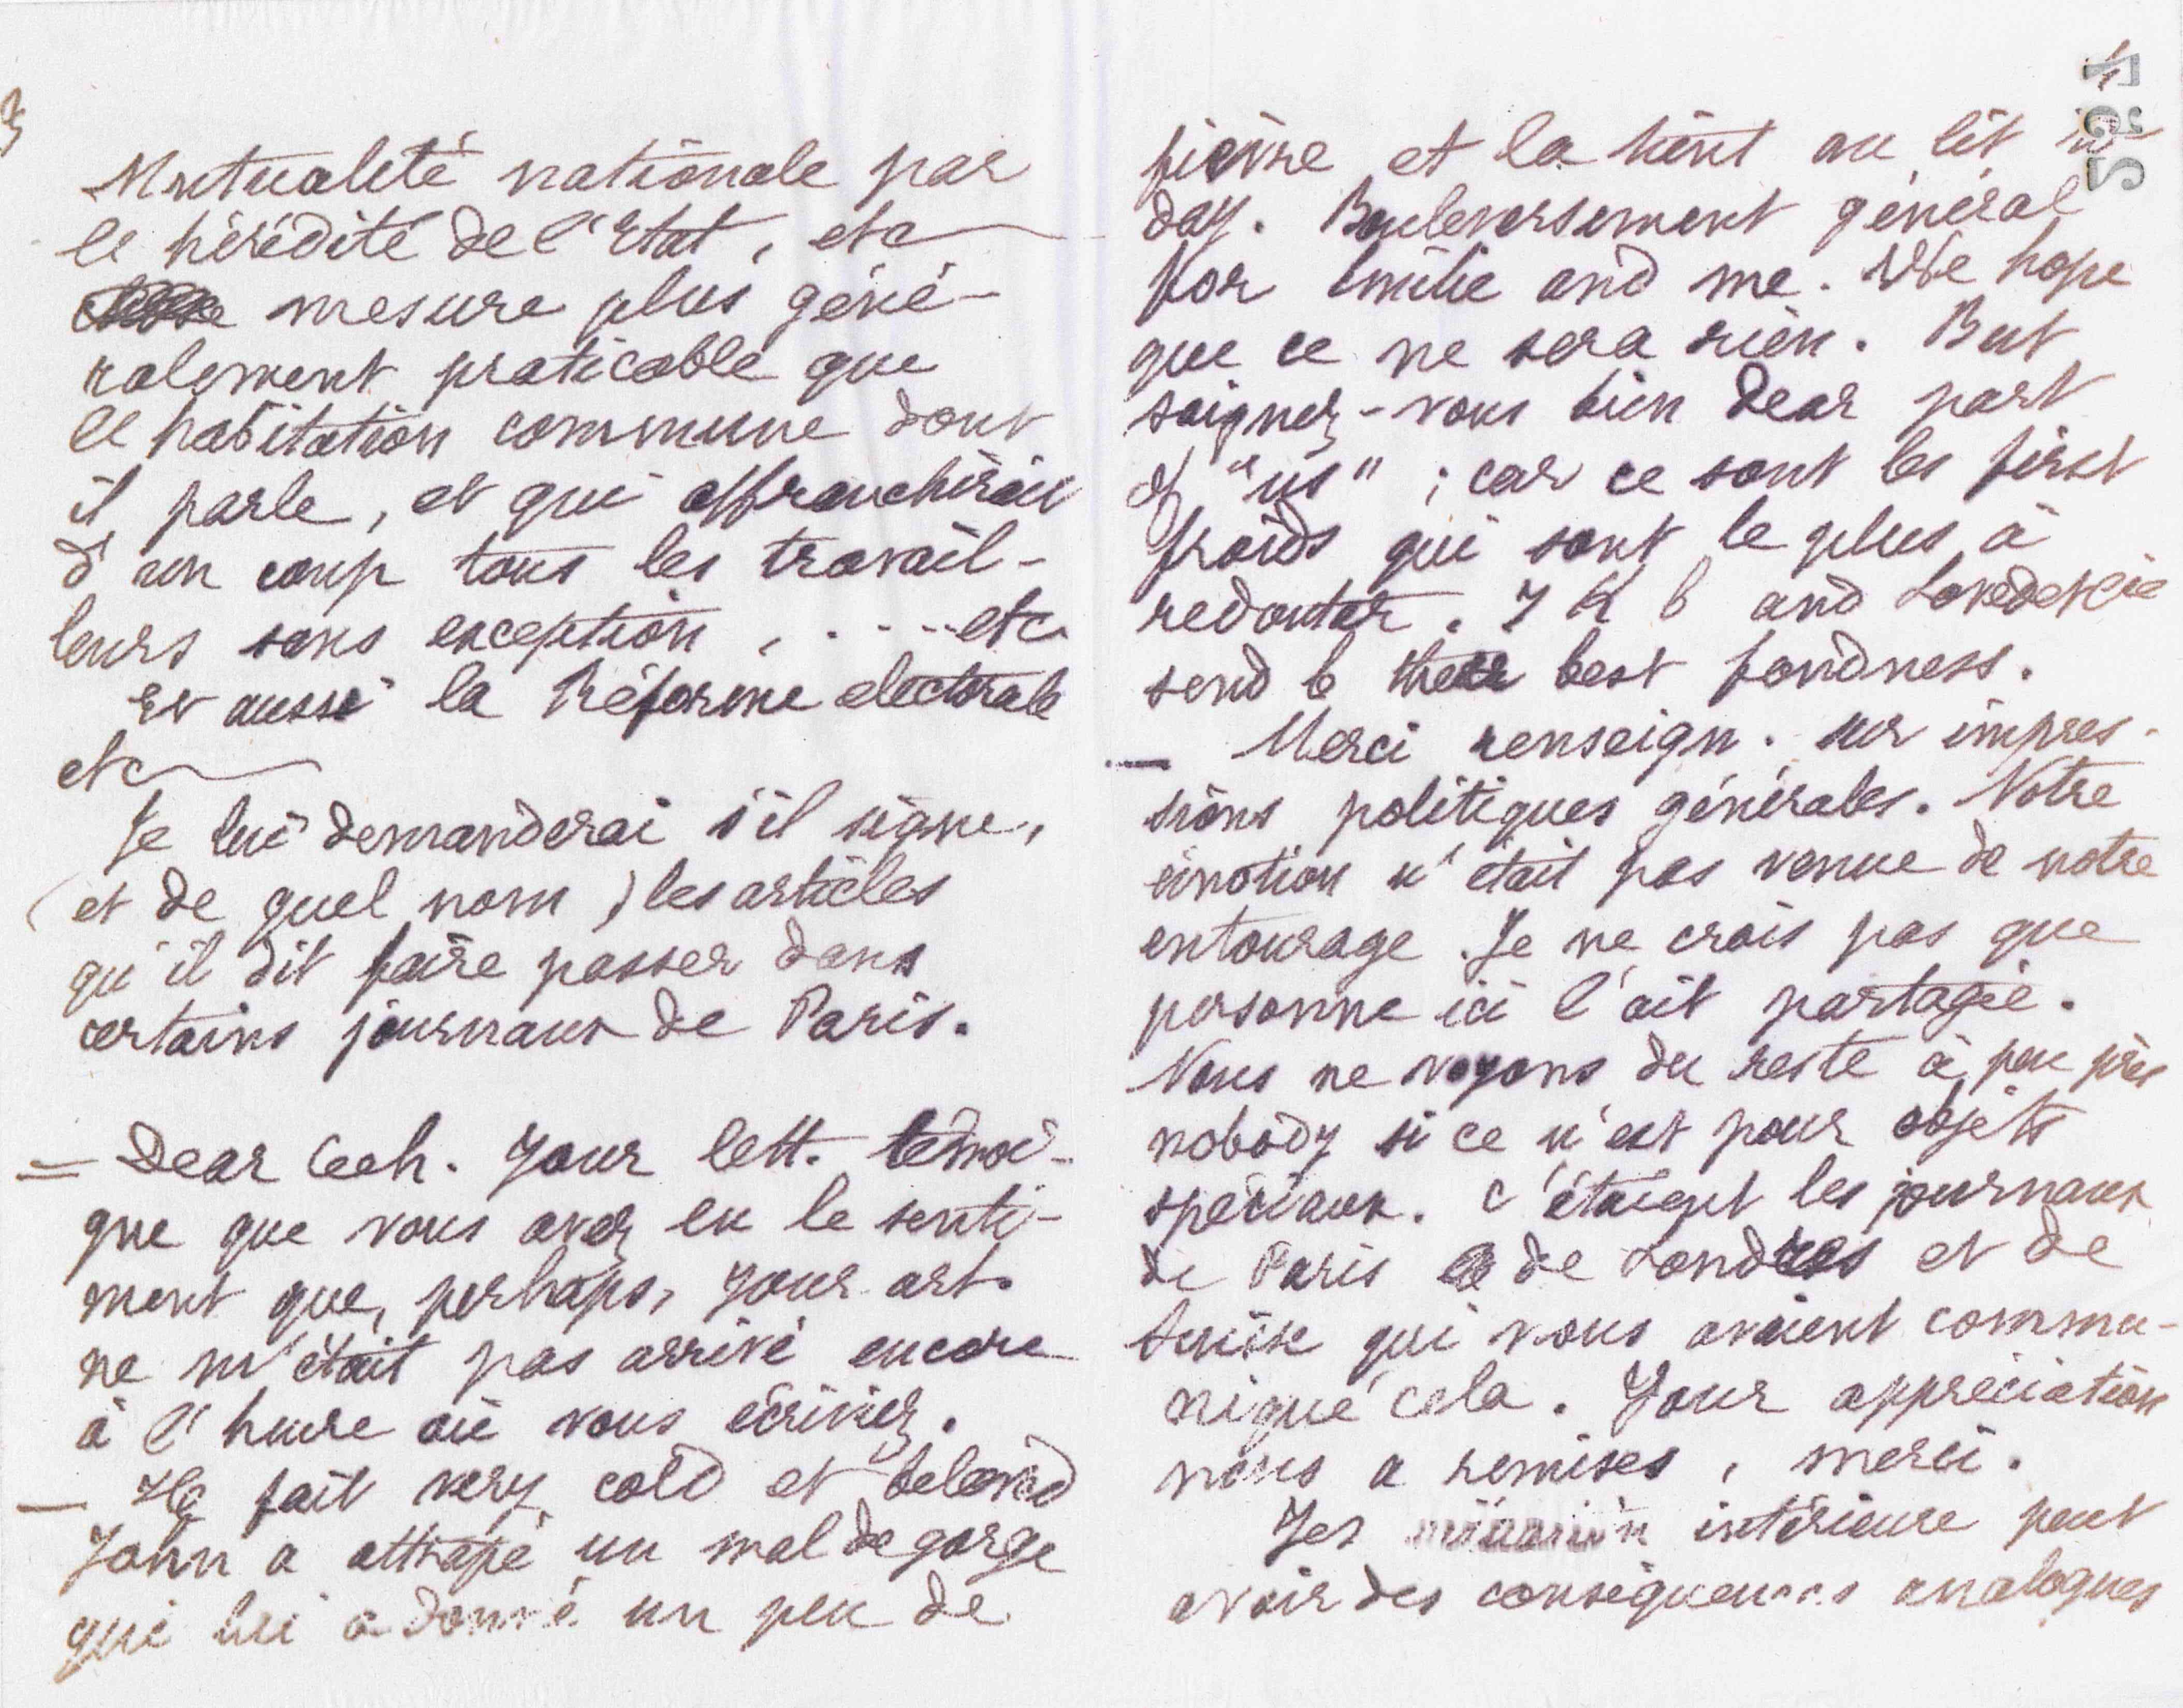 3
Mutualité nationale par
l'hérédité de l'Etat, etc
mesure plus géné-
ralement praticable que
l'habitation commune dont
il parle, et qui affranchirait
d'un coup tous les travail-
leurs sans exception, . . . . etc
Et aussi la Réforme électorale
etc
Je lui demanderai s'il signe,
(et de quel nom) les articles
qu'il dit faire passer dans
certains journaux de Paris.
= Dear Ceeh. Your lett. témoi-
gne que vous avez eu le senti-
ment que, perhaps, your art.
ne m'était pas arrivé encore
à l'heure où vous écriviez.
— Il fait very cold et beloved
John a attrapé un mal de gorge
qui lui a donné un peu de
4
521
fièvre et la tient au lit to
day. Bouleversement général
for Emilie and me. We hope
que ce ne sera rien. But
soignez-vous bien dear part
of "us" ; car ce sont les first
froids qui sont le plus à
redouter. J K b and
send b their best fondness.
— Merci renseign. sur impres-
sions politiques générales. Notre
émotion n'était pas venue de notre
entourage. Je ne crois pas que
personne ici l'ait partagée.
Nous ne voyons du reste à peu près
nobody si ce n'est pour objets
spéciaux. C'étaient les journaux
de Paris de Londres et de
Suisse qui nous avaient commu-
niqué cela. Your appréciation
nous a remises, merci.
Yes intérieure peut
avoir des conséquences analogues